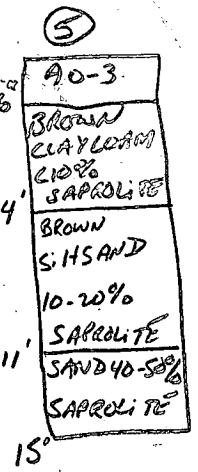 5
A 0-3
BROWN
CLAYLOAM
<10%
SAPROLITE
4'
BROWN
SiltSAND
10-20%
SAPROLITE
11'
SAND 40-50%
SAPROLITE
15'